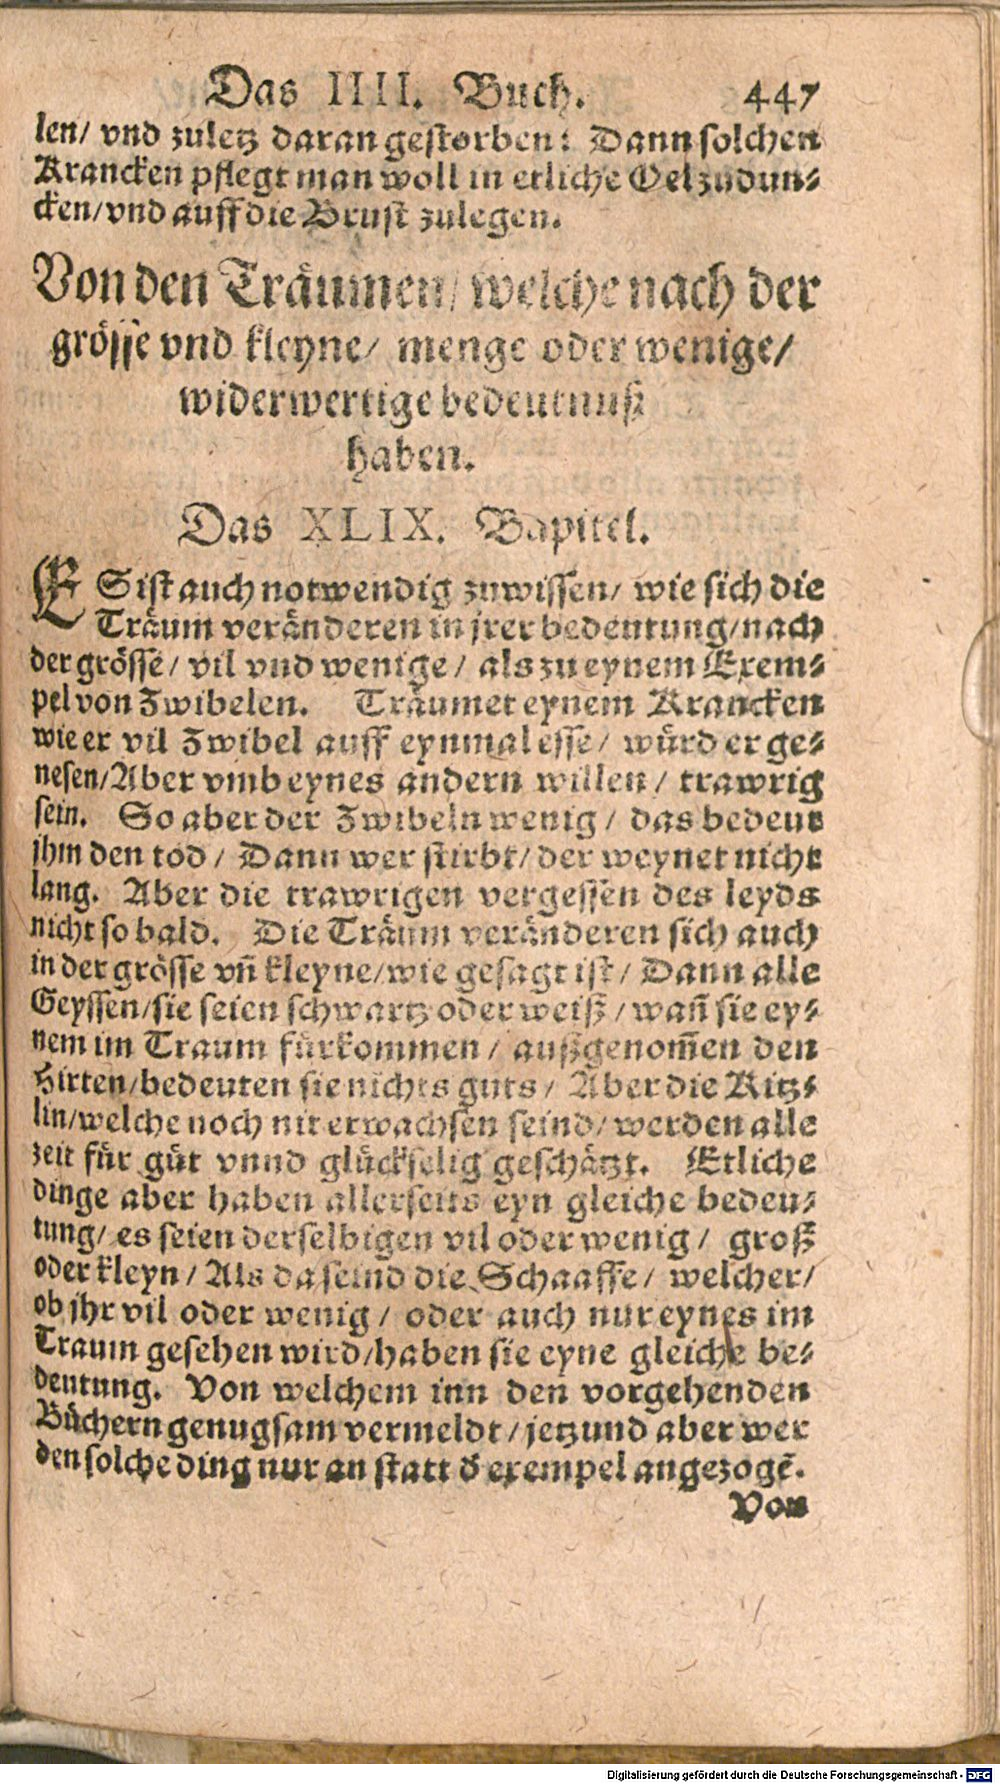 Das IIII. Buch. 447
len/ vnd zuletz daran gestorben: Dann solchen
Krancken pflegt man woll in etliche Oel zudun-
cken/vnd auff die Brust zulegen.
Von den Träumen/ welche nach der
grösse vnd kleyne/ menge oder wenige/
widerwertige bedeutnuß
haben.
Das XLIX. Capitel.
ES ist auch notwendig zuwissen/ wie sich die
Träum veränderen in jrer bedeutung/nach
der grösse/ vil vnd wenige/ als zu eynem Exem-
pel von Zwibelen. Träumet eynem Krancken
wie er vil Zwibel auff eynmal esse/ würd er ge-
nesen/Aber vmb eynes andern willen/ trawrig
sein. So aber der Zwibeln wenig/ das bedeut
jhm den tod/ Dann wer stirbt/der weynet nicht
lang. Aber die trawrigen vergessen des leyds
nicht so bald. Die Träum veränderen sich auch
in der grösse vñ kleyne/wie gesagt ist/ Dann alle
Geyssen/sie seien schwartz oder weiß/wañ sie ey-
nem im Traum fürkommen/ außgenom̃en den
Hirten/bedeuten sie nichts guts/ Aber die Kitz-
lin/welche noch nit erwachsen seind/werden alle
zeit für gůt vnnd glückselig geschätzt. Etliche
dinge aber haben allerseits eyn gleiche bedeu-
tung/ es seien derselbigen vil oder wenig/ groß
oder kleyn/ Als da seind die Schaaffe/ welcher/
ob jhr vil oder wenig/ oder auch nur eynes im
Traum gesehen wird/haben sie eyne gleiche be-
deutung. Von welchem inn den vorgehenden
Büchern genugsam vermeldt/jetzund aber wer
den solche ding nur an statt ď exempel angezogẽ.
Von
Digitalisierung gefördert durch die Deutsche Forschungsgemeinschaft - DFG